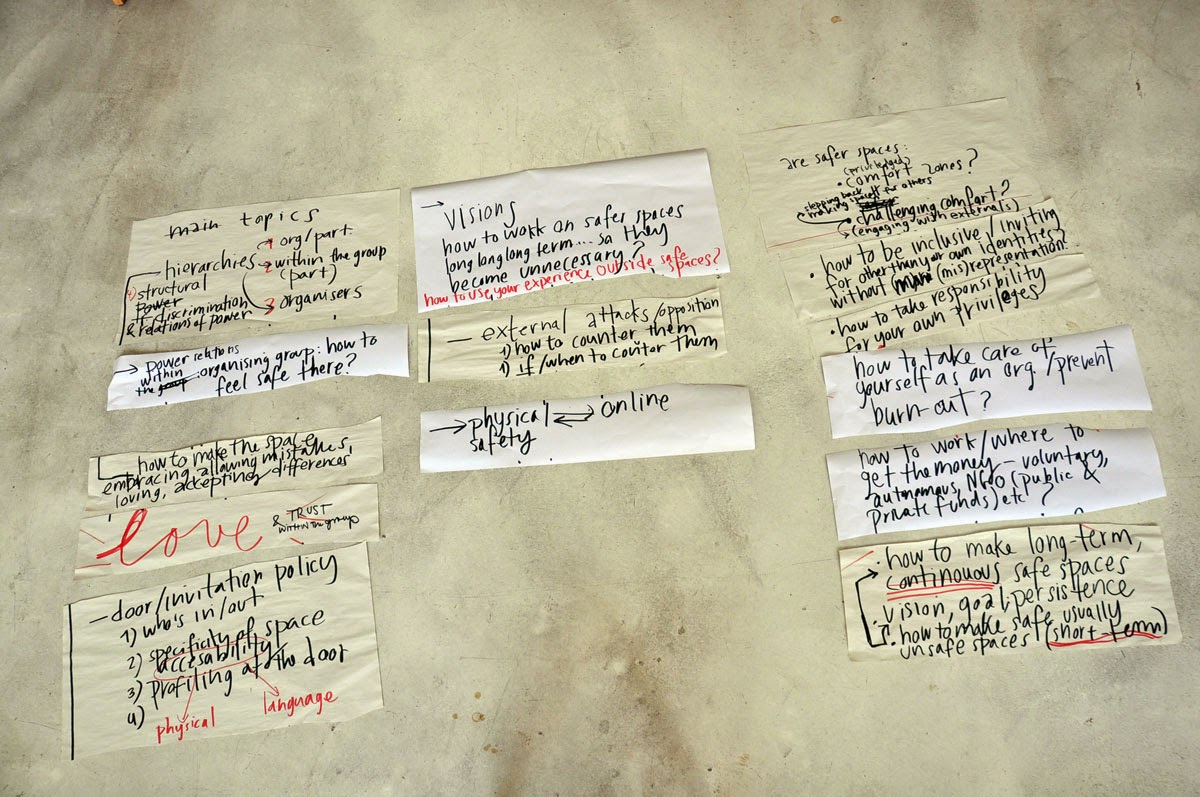 main topics
hierarchies
1 org/part.
2 within the group
(part)
3 organisers
structural
power
+ discrimination
& relations of power
→ power relations
within
the group
organising group: how to
feel safe there?
how to make the space
embracing, allowing mistakes,
loving, accepting differences
love
& TRUST
within the group
— door/invitation policy
1) who's in/out
2) specificity of space
3) accesability
4) profiling at the door
physical
language
→ visions
how to work on safer spaces
long long long term... so they
became unnecessary?
how to use your experience outside safe
spaces?
— external attacks/opposition
1) how to counter them
1) if/when to counter them
→ physical ⇌ online
safety
are safer spaces:
(priviledged)
• comfort zones?
stepping back
making space for others
challenging comfort?
(engaging with externals)
• how to be inclusive / inviting
for other than your own identities?
without (mis)representation?
• how to take responsibility
for your own privileges
how to take care of
yourself as an org./prevent
burn-out?
how to work/where to
get the money – voluntary,
autonomous, NGO (public &
private funds) etc?
• how to make long-term,
continouous safe spaces
• vision, goal-persistence
• how to make safe usually
unsafe spaces (short-term)